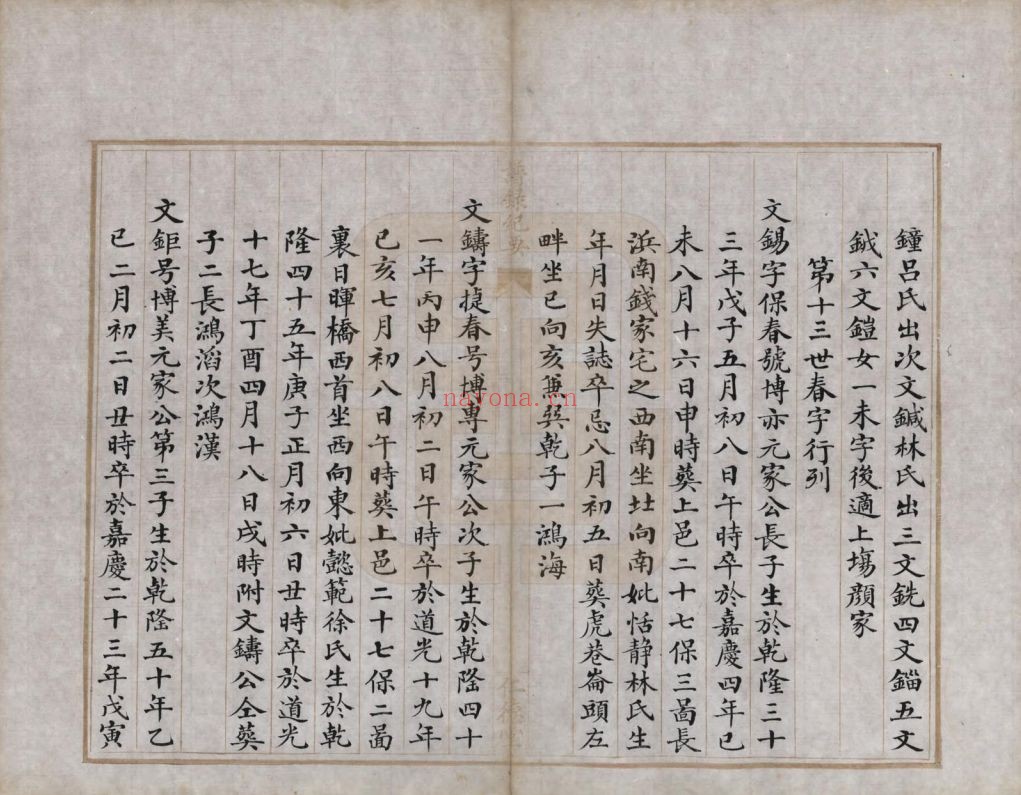 鐘呂氏出次文鍼林氏出三文銑四文錙五文
鉞六文鎧女一未字後適上塲顔家
第十三世春字行列
文錫字保春號博亦元家公長子生於乾隆三十
三年戊子五月初八日午時卒於嘉慶四年已
未八月十六日申時葬上邑二十七保三啚長
浜南錢家宅之西南坐𡉏向南妣恬静林氏生
年月日失誌卒忌八月初五日葬虎巷崙頭左
畔坐已向亥兼巽乾子一鴻海
文鑄字捷春号博專元家公次子生於乾隆四十
一年丙申八月初二日午時卒於道光十九年
已亥七月初八日午時葬上邑二十七保二啚
裏日暉橋西首坐西向東妣懿範徐氏生於乾
隆四十五年庚子正月初六日丑時卒於道光
十七年丁酉四月十八日戌時附文鑄公仝葬
子二長鴻滔次鴻漢
文鉅号博美元家公第三子生於乾隆五十年乙
已二月初二日丑時卒於嘉慶二十三年戊寅
nayona.cn